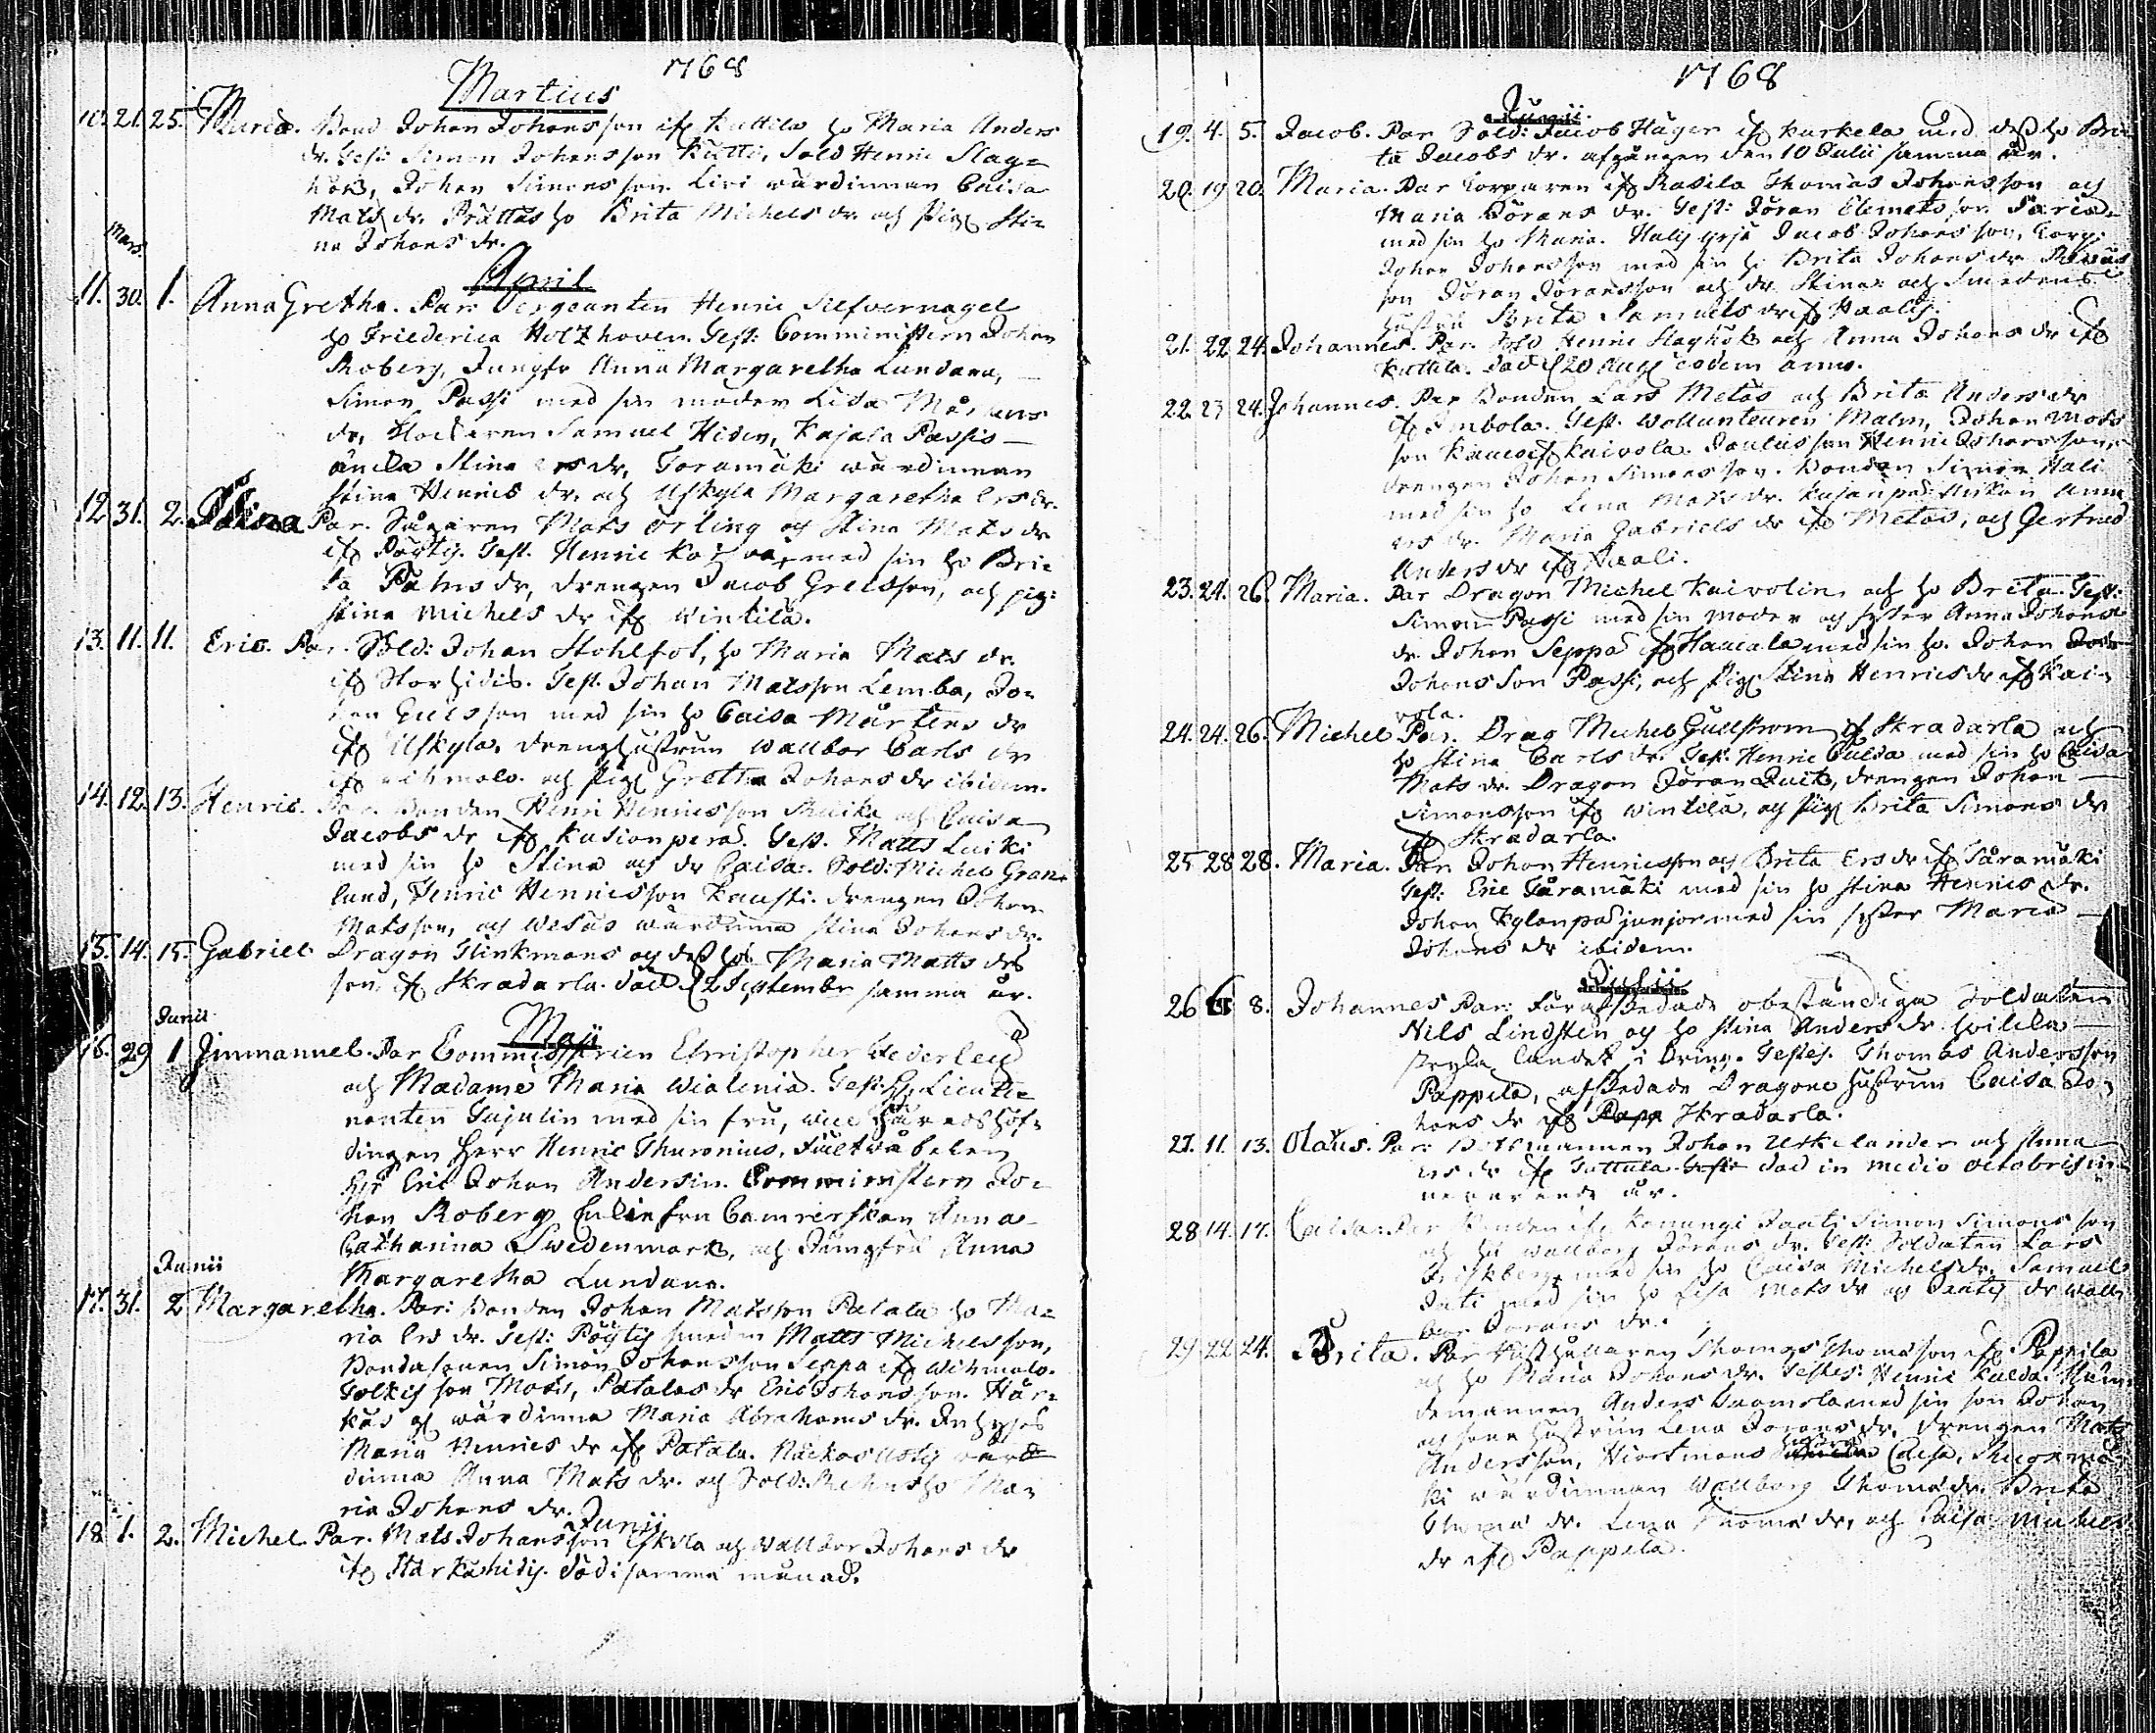 1768
Martius
10. 21. 25. Maria. Bond Johan Johansson ifr Kuttila ho Maria Anders
dr. Test: Simon Johansson Kutti, Sold Henric Slag=
hök, Johan Simonsson Livi wärdinnan Caisa
Mats dr. Prättäs ho Brita Michels dr. och Pig Sti=
na Johans dr.
Mars.
April
11. 30. 1. Anna Gretha. Par: Sergeanten Henric Silfvernagel
ho Friederica Holzhoven. Test: Comministern Johan
Roberg, Jungfr Anna Margaretha Lundana,
Simon Passi med sin moder Lisa Mårtens
dr, Klockaren Samuel Hiden, Kajala Passis
Stina Ers dr, Toramäki wärdinnan
Stina Henrics dr. och Uskyla Margaretha Ers dr.
12. 31. 2. Stina Par. Mats Örling och Stina Mats dr
ifr Pöytis. Test. Henric med sin ho Bri=
ta dr, drengen Jacob Grelsson, och pig:
Stina Michels dr ifr Wintila.
13. 11. 11. Eric. Par. Sold: Johan Stohlfot, ho Maria Mats dr.
ifr Storhidis. Test. Johan Matsson Lemba, Jo=
han Ericsson med sin ho Caisa Mårtens dr
ifr Uskyla, drenghustrun Wallbor Carls dr
ifr och Pig Gretha Johans dr ibidem.
14. 12. 13. Henric. Par. Bonden Henric Henricsson och Caisa
Jacobs dr ifr Kusionperä. Test. Matts Luiki
med sin ho Stina och dr Caisa. Sold: Michel Gran=
lund, Henric Henricsson Kausti. drengen Johan
Matsson, och wärdinna Stina Johans dr.
15. 14. 15. Gabriel Dragon Flinkmans och dess ho Maria Matts drs
son ifr Skradarla. död d 2 Septembr samma år.
Junii
Maji
16. 29 1 Immanuel. Par Commissarien Christopher Cederleuf
och Madame Maria Wialenia. Test: Hr Lieute=
nanten Gajulin med sin fru, vice Häradshöf=
dingen Herr Henric Thuronius, Fältwäbelen
Hr Eric Johan Andersin. Comministern Jo=
han Roberg fru Camrerskan Anna
Catharina Swedenmark, och Jungfru Anna
Margaretha Lundana.
Junii
17. 31. 2 Margaretha. Par: Bonden Johan Matsson Patala ho Ma=
ria Ers dr. Test: Pöytis smeden Matts Michelsson,
Bondasonen Simon Johansson Seppä ifr Wihmalo.
son Mats, Patalas dr Eric Johansson. Här=
käs wärdinna Maria Abrahams dr. Inhyses
Maria Henrics dr ifr Patala. wär
dinna Anna Mats dr. och Sold: ho Ma=
ria Johans dr.
Junii
18. 1. 2. Michel. Par. Mats Johansson och Wallbor Johans dr
ifr Starkahidis. död i samma månad.
1768
Junii
19. 4. 5. Jacob. Par Sold: Jacob Häger ifr Kurkela med dess ho Bri=
ta Jacobs dr. afgången den 10 Julii samma år.
20. 19 20. Maria. Par Corporen ifr Rasila Thomas Johansson och
Maria Görans dr. Test: Göran Clemetsson
med sin ho Maria. Jacob Johansson, Corp:
Johan Johansson med sin h. Brita Johans dr
son Göran Göransson och dr Stina och Smedens
hustru Brita Samuels dr ifr Haalis.
21. 22 24. Johannes. Par. Sold Henric Slaghök och Anna Johans dr ifr
Kuttila. död d 20 Aug eodem anno.
22. 23 24. Johannes. Par Bonden Lars Metas och Brita Anders dr
ifr Simbola. Test. Wollunteuren Malm, Johan Mats
son ifr Kaivola. son Henric Johansson,
drengen Johan Simonsson. Bonden Simon Hali
med sin ho Lena Mats dr. Anna
ers dr. Maria Gabriels dr ifr Metas, och Gertrud
Anders dr ifr Haali.
23. 24. 26. Maria. Par Dragon Michel Kaivolin, och ho Brita. Test:
Simon Passi med sin moder och syster Anna Johans
dr Johan Seppä ifr Haucala med sin ho. Johan
Johans Son Passi, och Pig Stina Henrics dr ifr Kai=
vola.
24. 24. 26. Michel Par. Drag Michel Gullstrom ifr Skradarla och
ho Stina Carls dr. Test: Henric Culda med sin ho Caisa
Mats dr. Dragon Göran Quick, drengen Johan
Simonsson ifr Wintila, och Pig Brita Simons dr
ifr Skradarla.
25 28 28. Maria. Par Johan Henricsson och Brita Ers dr ifr Tåramäki
Test: Eric Tåramäki med sin ho Stina Henrics dr.
Johan Kylänpä junior med sin syster Maria
Johans dr ibidem.
Julii
26 6 8. Johannes Par: Förafskedade obeståndiga Soldaten
Nils Lindsten och ho Stina Anders dr hvilcka
stryka landet i kring. Testes. Thomas Andersson
Pappila, afskedade Dragone hustrun Caisa Jo=
hans dr ifr Papp Skradarla.
27. 11. 13. Olaus. Par: Båtsmannen Johan Uskelander och Anna
ers dr ifr Guttula. Test: död in medio octobris in=
nevarande år.
28 14. 17. Caisa: Par Bonden ifr Konungi Jaati Simon Simonsson
och ho Wallborg Görans dr. Test: Soldaten Lars
Friskberg med sin ho Caisa Michels dr. Samuel
Jati med sin ho Lisa Mats dr och Jaatis dr Wall
bor Görans dr.
29 22 24. Brita. Par Thomas Thomasson ifr Pappila
och ho Maria Johans dr. Testes: Henric Kulda. Näm=
demannen Anders med sin son Johan
och sons hustrun Lena Görans dr, drengen Mats
Andersson, Hiortmans hustru Caisa,
ki wärdinnan Wallborg Thomas dr. Brita
Thomas dr. Lena Thomas dr, och Caisa Michels
dr ifr Pappila.